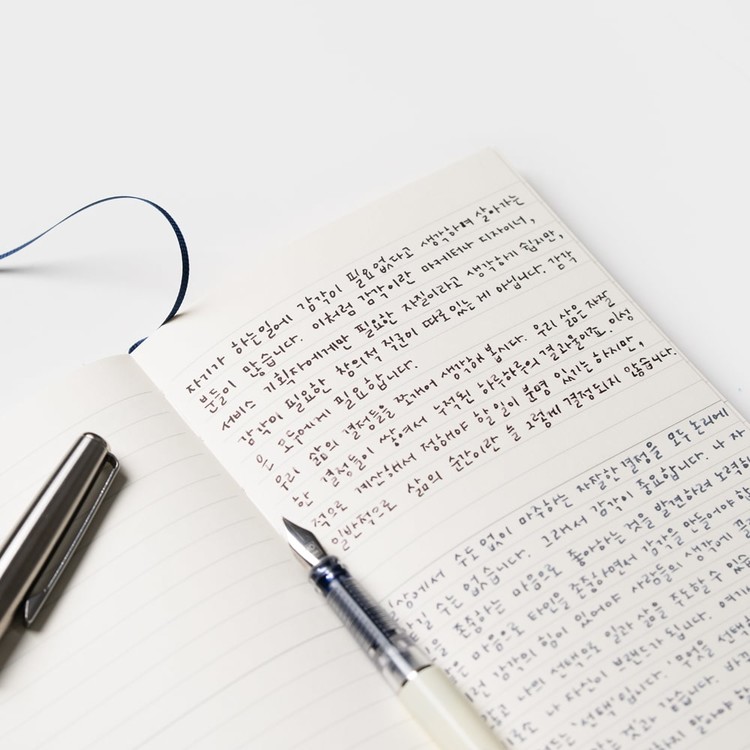 자기가 하는일에 감각이 필요없다고 생각하며 살아가는
분들이 많습니다. 이처럼 감각이란 마케터나 디자이너,
서비스 기획자에게만 필요한 자질이라고 생각하기 쉽지만,
감각이 필요한 창의적 직군이 따로있는 게 아닙니다. 감각
은 모두에게 필요합니다.
우리 삶의 결정들을 쪼개어 생각해 봅시다. 우리 삶은 자잘
한 결정들이 쌓여서 누적된 하루하루의 결과물이죠. 이성
적으로 계산해서 정해야 할 일이 분명 있기는 하지만,
일반적으로 삶의 순간이란 늘 그렇게 결정되지 않습니다.
일상에서 수도 없이 마주하는 자잘한 결정을 모두 논리에
수는 없습니다. 그래서 감각이 중요합니다. 나 자
존중하는 마음으로 좋아하는 것을 발견하려 노력하
마음으로 타인을 존중하면서 감각을 만들어야 합
감각의 힘이 있어야 사람들의 생각에
나의 선택으로 일과 삶을 주도할 수 있습
나 자신이 브랜드가 됩니다. 여기
'선택'입니다. '무엇을 선택
것과 같습니다.